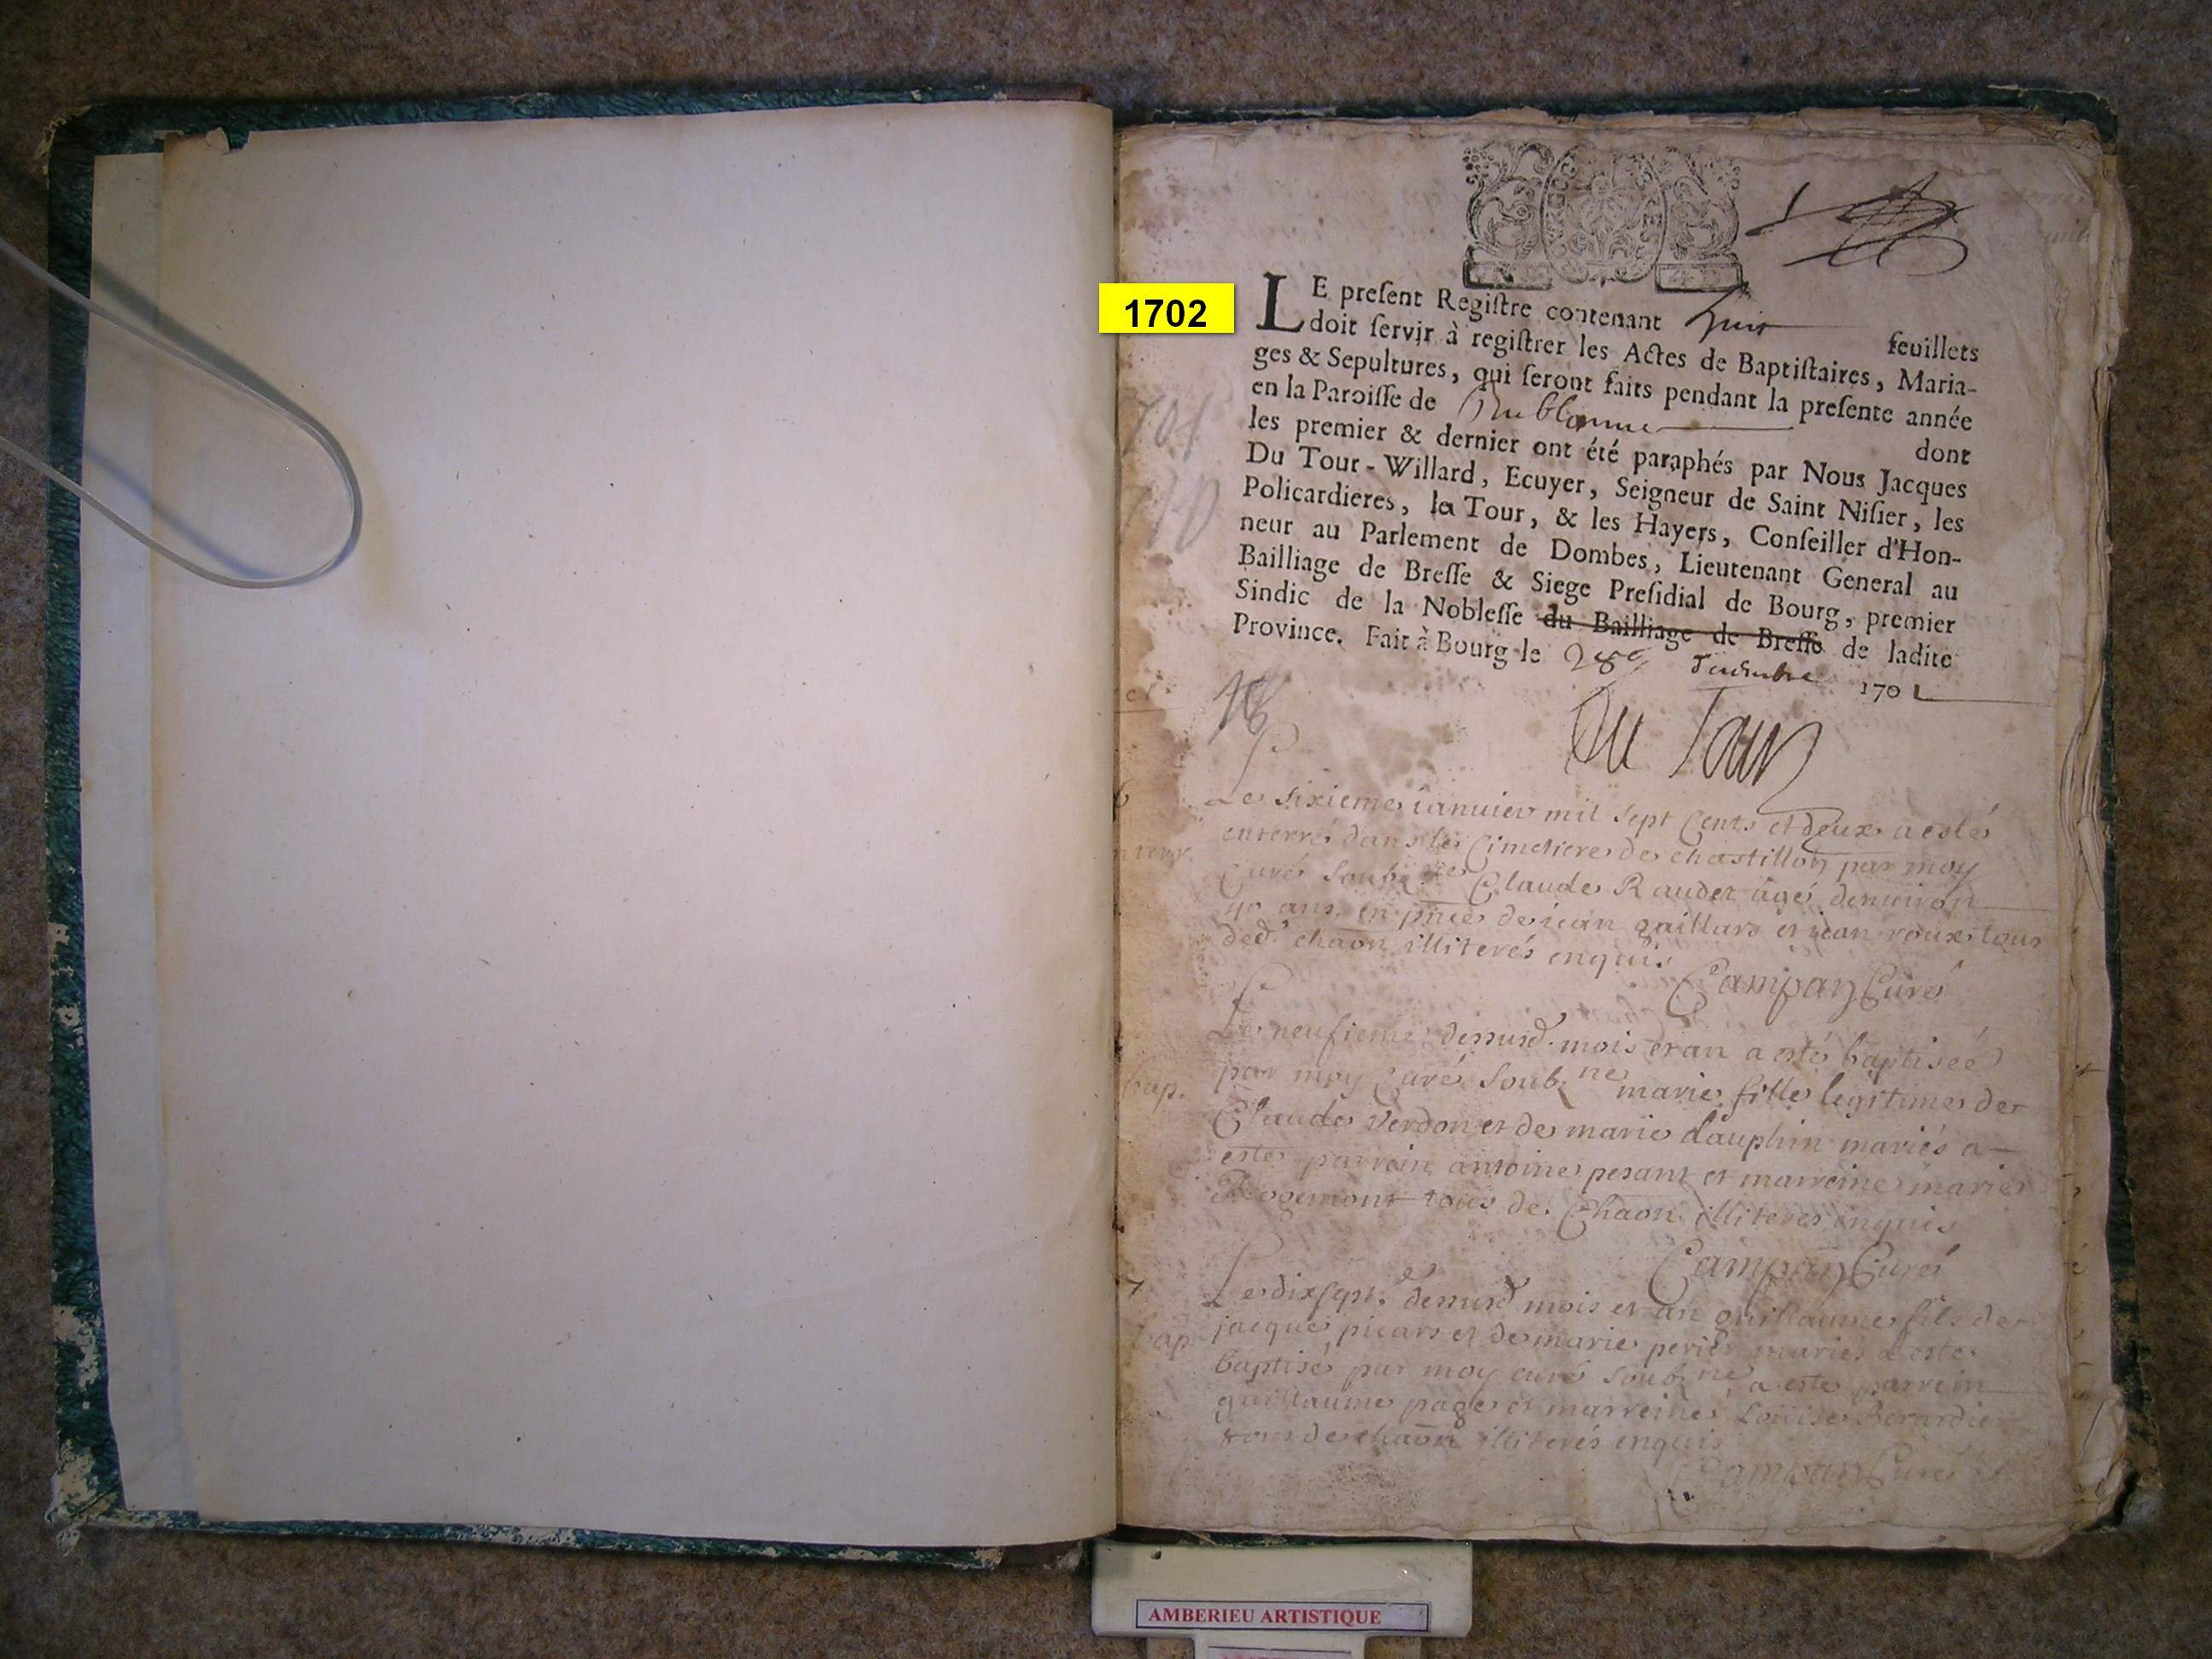 1702
LE preſent Regiſtre contenant huit feuillets
doit ſervir à regiſtrer les Actes de Baptiſtaires, Maria-
ges & Sepultures, qui ſeront faits pendant la preſente année
en la Paroiſſe de dont
les premier & dernier ont été paraphés par Nous Jacques
Du Tour-Willard, Ecuyer, Seigneur de Saint Niſier, les
Policardieres, la Tour, & les Hayers, Conſeiller d'Hon-
neur au Parlement de Dombes, Lieutenant General au
Bailliage de Breſſe & Siege Preſidial de Bourg, premier
Sindic de la Nobleſſe du Bailliage de Breſſe de ladite
Province. Fait à Bourg le 28e 170
Du Tour
Le sixieme ianuier mil sept Cents et deux a esté
enterré dans le Cimetiere de chastillon par moy
Curé soubz.né Claude Raudet agé denuiron
40 ans, en pnce de iean gaillard et iean roux tous
ded. chaon illiterés enquis
Campan Curé
Le neufieme dessusd. mois et an a esté baptiseé
bap.
par moy Curé soubz.né marie fille legitime de
Claude Verdon et de marie dauphin mariés a
esté parrein antoine pesant et marreine marie
Rogemont tous de Chaon illiterés enquis
Campan Curé
7
Le dixsept.e dessusd mois et an guillaume fils de
bap.
jacque picard et de marie perier mariés a esté
baptisé par moy curé soubz.né a esté parrein
guillaume page et marreine Loüise Berardier
tous de chaon illiterés enquis
Campan Curé
AMBERIEU ARTISTIQUE